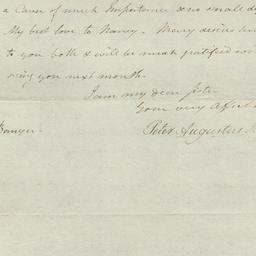 a Cause of much Importance & no small de
My best love to Nancy. Mercy desires
to you both & will be much gratified
you next month.
I am my dear Sister
Your very Affect
Peter Augustus